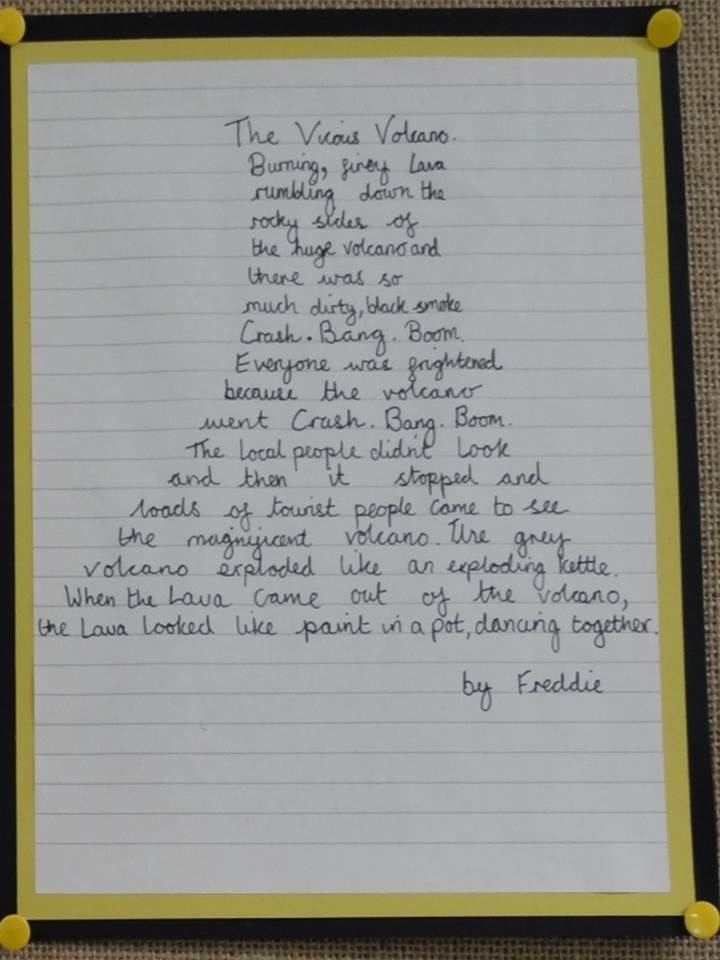 The Vicious Volcano.
Burning, firey Lava
rumbling down the
rocky sides of
the huge volcano and
there was so
much dirty, black smoke
Crash. Bang. Boom.
Everyone was frightened
because the volcano
went Crash. Bang. Boom.
The local people didn't Look
and then it stopped and
loads of tourist people came to see
the magnificent volcano. The grey
volcano exploded like an exploding kettle.
When the Lava came out of the volcano,
the Lava looked like paint in a pot, dancing together.
by Freddie